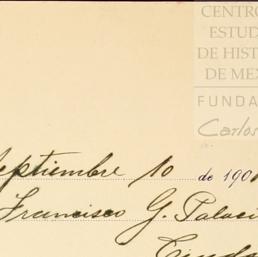 CENTRO
ESTUD
DE HIST
DE MEX
FUNDA
Carlos
Septiembre 10 de 190
Francisco G. Palaci
Ciuda